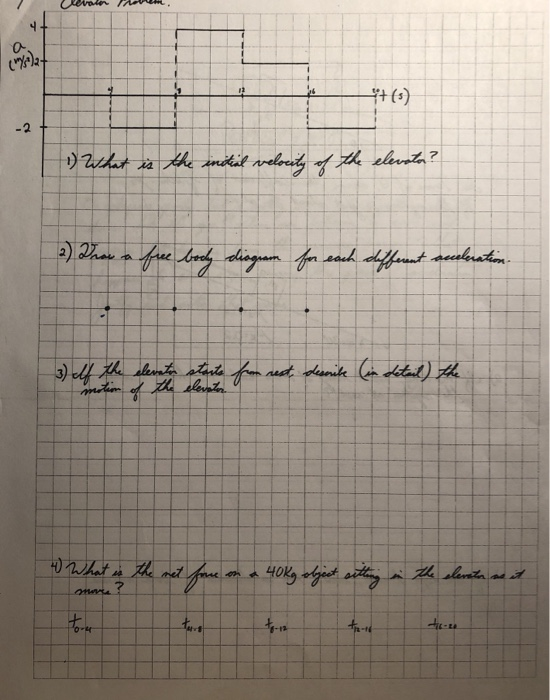 Elevator Problem.
4
a
(m/s²) 2
4 8 12 16 20 t (s)
-2
1) What is the initial velocity of the elevator?
2) Draw a free body diagram for each different acceleration.
3) If the elevator starts from rest, describe (in detail) the
motion of the elevator
4) What is the net force on a 40kg object sitting in the elevator as it
moves?
t0-4 t4-8 t8-12 t12-16 t16-20